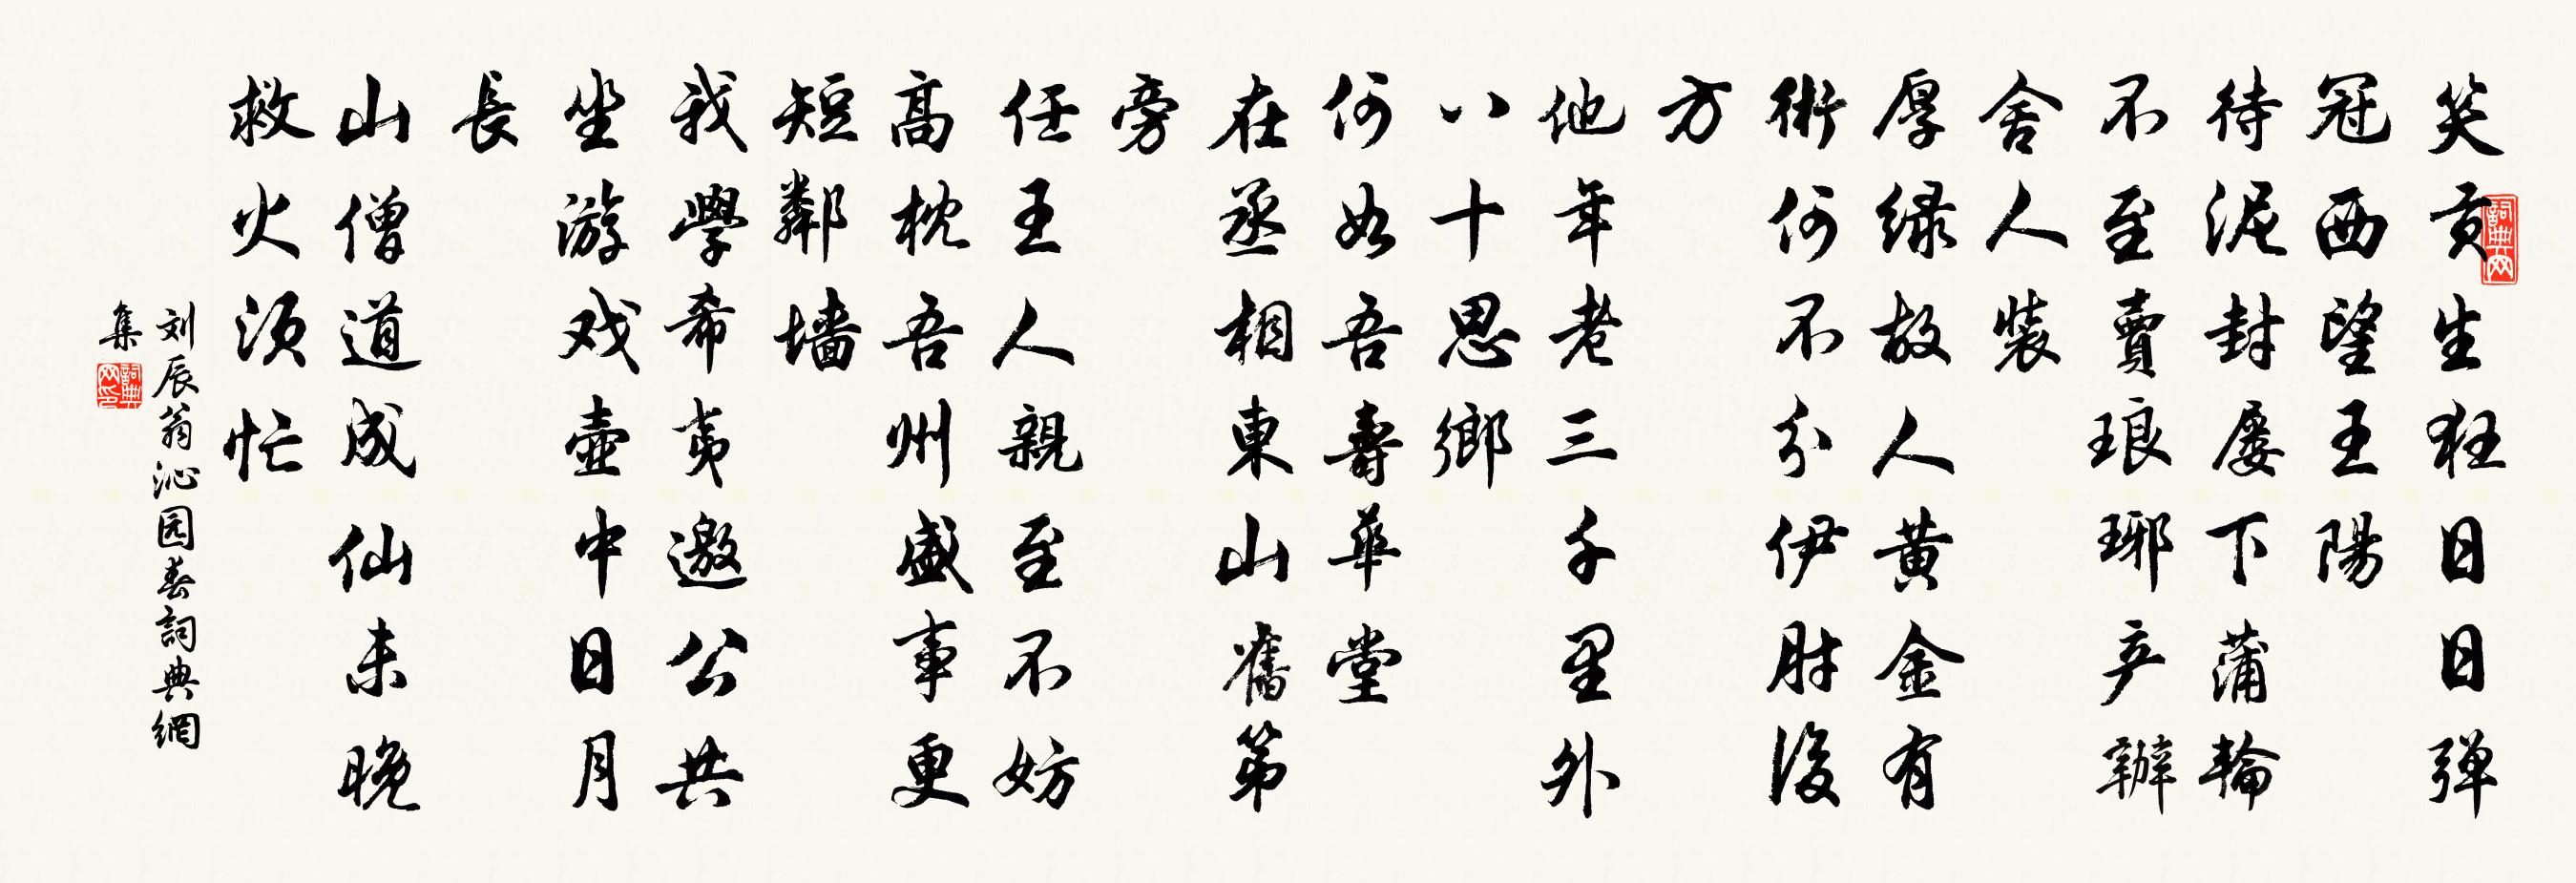 笑贡生狂日日弹
冠西望王陽
待泥封屡下蒲輪
不至賣琅琊产辦
舍人裝
厚绿故人黄金有
術何不分伊肘後
方
他年老三千里外
八十思鄉
何如吾壽華堂
在丞相東山舊第
旁
任王人親至不妨
高枕吾州盛事更
短鄰墻
我學希夷邀公共
坐游戏壺中日月
長
山僧道成仙未晚
救火須忙
刘辰翁沁园春詞典網
集
詞典网
詞典网印